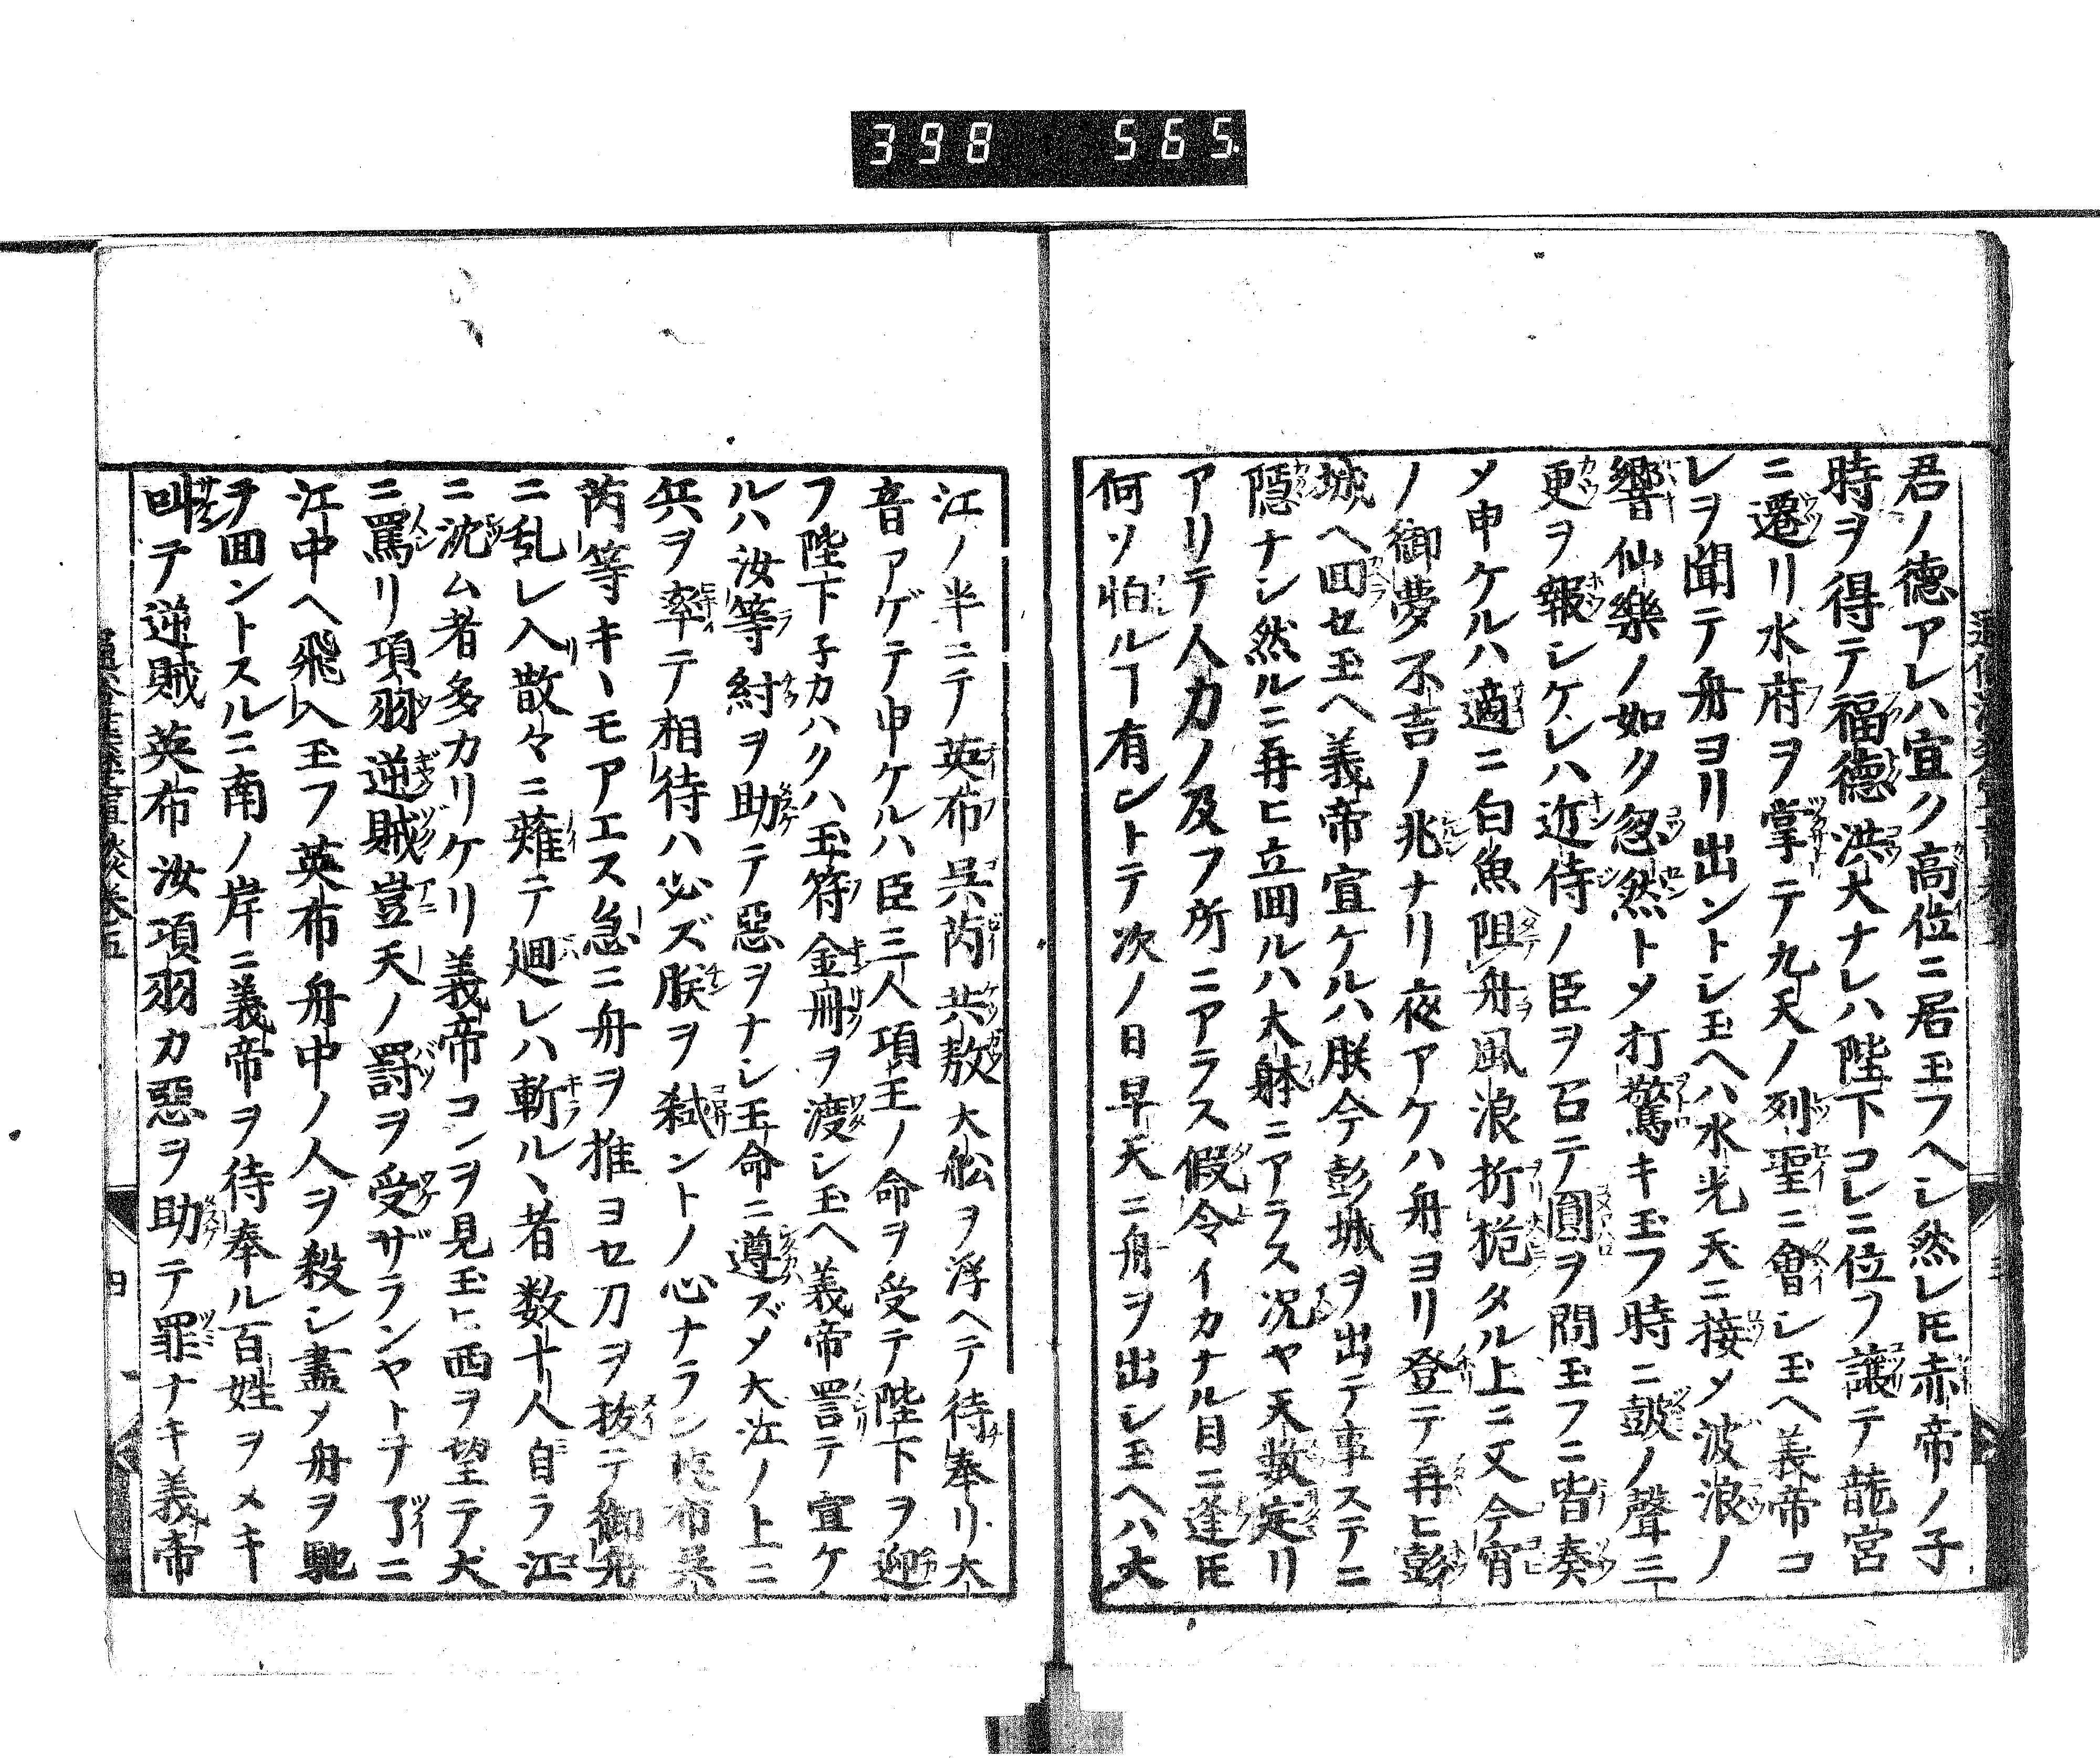 398 565.
君ノ徳アレハ宜ク高位ニ居玉フヘシ然レ𪜈赤帝ノ子
時ヲ得テ福徳洪大ナレハ陛下コレニ位ヲ譲テ龍宮
ニ遷リ水府ヲ掌テ九天ノ列聖ニ會シ玉ヘ義帝コ
レヲ聞テ舟ヨリ出ントシ玉ヘハ水光天ニ接メ波浪ノ
響仙樂ノ如ク忽然トメ打驚キ玉フ時ニ鼓ノ聲三
更ヲ報シケレハ近侍ノ臣ヲ召テ圓ヲ問玉フニ皆奏
メ申ケルハ適ニ白魚阻舟風浪折桅タル上ニ又今宵
ノ御夢不吉ノ兆ナリ夜アケハ舟ヨリ登テ再ヒ彭
城ヘ回セ玉ヘ義帝宣ケルハ朕今彭城ヲ出テ事ステニ
隠ナシ然ルニ再ヒ立回ルハ大躰ニアラス况ヤ天数定リ
アリテ人力ノ及フ所ニアラス假令イカナル目ニ逢𪜈
何ソ怕ルヿ有ントテ次ノ日早天ニ舟ヲ出シ玉ヘハ大
江ノ半ニテ英布呉芮共敖大舩ヲ浮ヘテ待奉リ大
音アゲテ申ケルハ臣三人項王ノ命ヲ受テ陛下ヲ迎
フ陛下子カハクハ玉符金冊ヲ渡シ玉ヘ義帝詈テ宣ケ
ルハ汝等紂ヲ助テ惡ヲナシ王命ニ遵ズメ大江ノ上ニ
兵ヲ率テ相待ハ必ズ朕ヲ弑ントノ心ナラン英布呉
芮等キヽモアエス急ニ舟ヲ推ヨセ刀ヲ抜テ御舟
ニ乱レ入散々ニ薙テ廻レハ斬ルヽ者数十人自ラ江
ニ沈ム者多カリケリ義帝コレヲ見玉ヒ西ヲ望テ大
ニ罵リ項羽逆賊豈天ノ罸ヲ受ザランヤトテ了ニ
江中ヘ飛入玉フ英布舟中ノ人ヲ殺シ盡メ舟ヲ馳
ヲ回ントスルニ南ノ岸ニ義帝ヲ待奉ル百姓ヲメキ
叫テ逆賊英布汝項羽カ惡ヲ助テ罪ナキ義帝